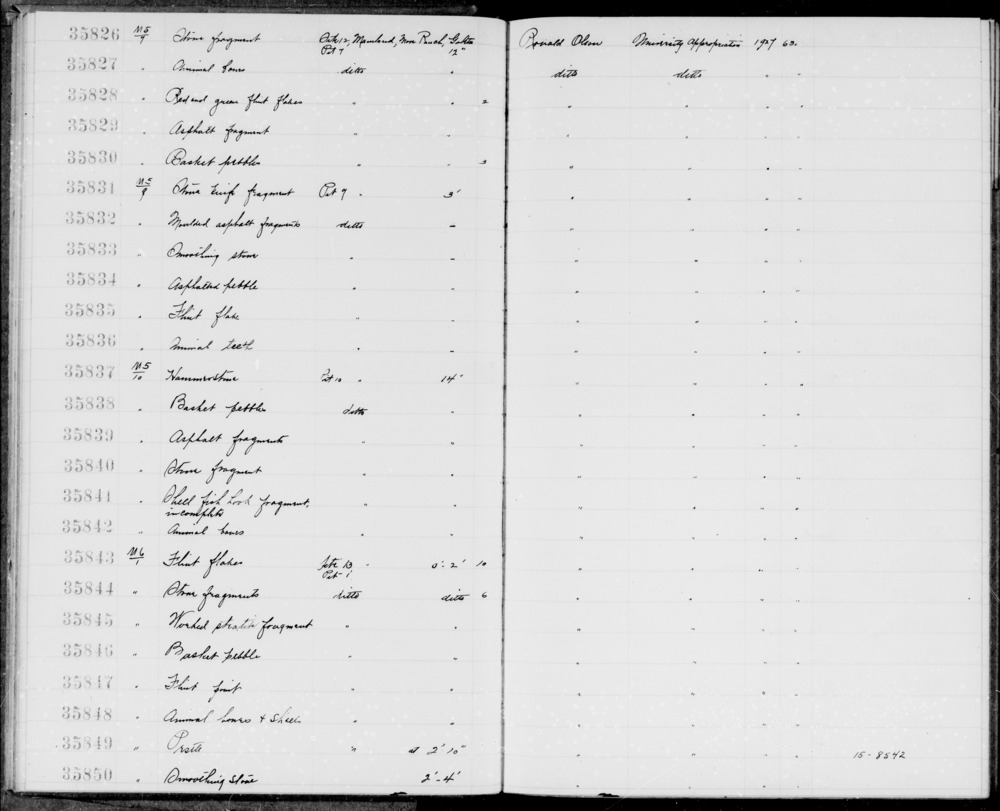 35826 M5/7 Stone fragment Site 12, Mainland, More Ranch, Goleta Ronald Olson University Appropriation 1927 63.
Pit 7 12"
35827 " Animal bones ditto " ditto ditto " "
35828 " Red and green flint flakes " " 2 " " " "
35829 " Asphalt fragment " " " " " "
35830 " Basket pebbles " " 3 " " " "
35831 M5/9 Stone knife fragment Pit 9 " 3' " " " "
35832 " Moulded asphalt fragments ditto " " " " "
35833 " Smoothing stone " " " " " "
35834 " Asphalted pebble " " " " " "
35835 " Flint flake " " " " " "
35836 " Animal teeth " " " " " "
35837 M5/10 Hammerstone Pit 10 " 14" " " " "
35838 " Basket pebbles ditto " " " " "
35839 " Asphalt fragments " " " " " "
35840 " Stone fragment " " " " " "
35841 " Shell fish hook fragment, " " " " " "
incomplete
35842 " Animal bones " " " " " "
35843 M6/1 Flint flakes Site 13 " 0'-2' 10 " " " "
Pit 1
35844 " Stone fragments ditto ditto 6 " " " "
35845 " Worked steatite fragment " " " " " "
35846 " Basket pebble " " " " " "
35847 " Flint point " " " " " "
35848 " Animal bones & Shell " " " " " "
35849 " Pestle " at 2' 10" " " " " 15-8542
35850 " Smoothing stone 2'-4' " " " "